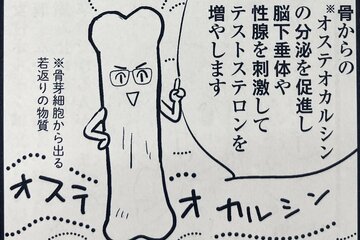 骨からの
※オステオカルシン
の分泌を促進し
脳下垂体や
性腺を刺激して
テストステロンを
増やします
※骨芽細胞から出る
若返りの物質
オステオカルシン